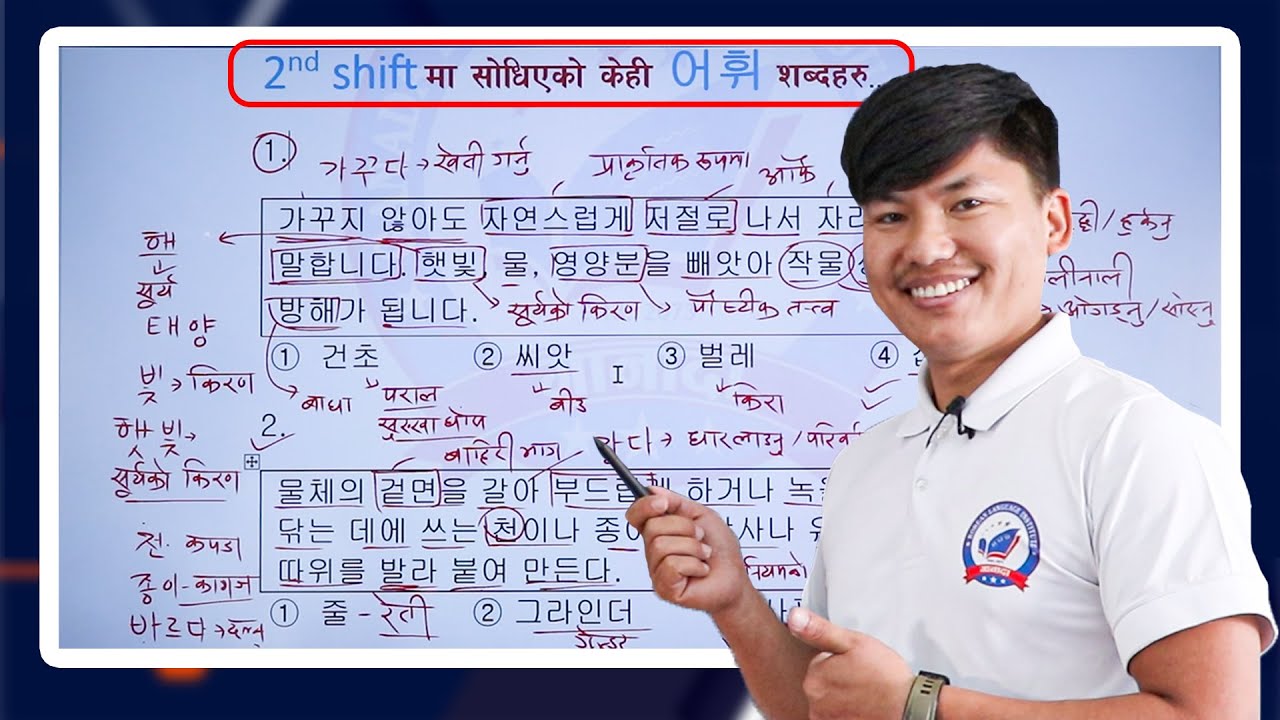 2nd shift मा सोधिएको केही 어휘 शब्दहरु...
1. 가꾸다 → खेती गर्नु प्राकृतिक रूपमा आफै
가꾸지 않아도 자연스럽게 저절로 나서 자라
말합니다. 햇빛, 물, 영양분을 빼앗아 작물
방해가 됩니다. सूर्यको किरण पौष्टीक तत्त्व
हुर्कनु
① 건초 ② 씨앗 ③ 벌레 ④
बाधा पराल बीउ किरा
सुख्खा घाँस
해
सूर्य
태양
빛 → किरण
햇빛 →
सूर्यको किरण
2. बाहिरी भाग
물체의 겉면을 갈아 부드럽게 하거나 녹
닦는 데에 쓰는 천이나 종이
따위를 발라 붙여 만든다.
천 - कपडा
종이 - कागज
바르다 →
① 줄 - रेती ② 그라인더
KOREAN LANGUAGE INSTITUTE